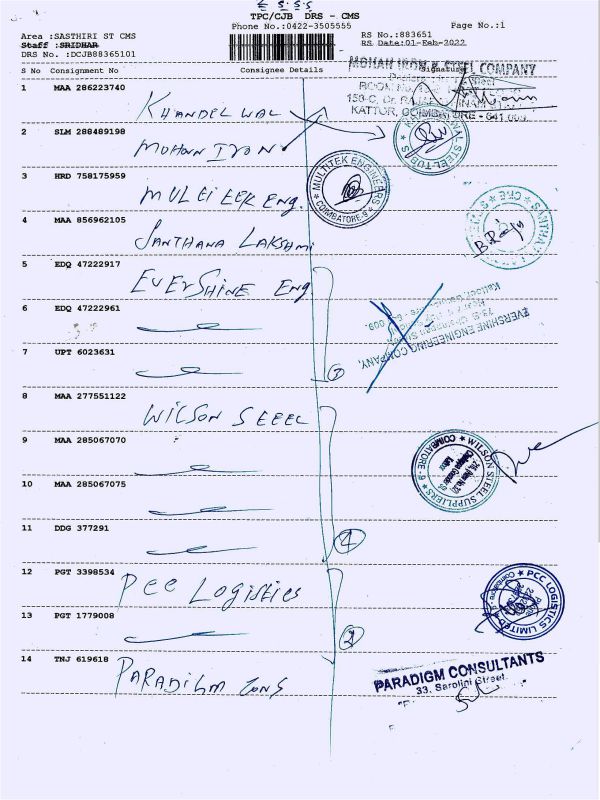 TPC/CJB DRS - CMS
Phone No.:0422-3505555
Page No.:1
Area :SASTHIRI ST CMS
RS No.:883651
Staff :SRIDHAR
RS Date:01-Feb-2022
DRS No. :DCJB88365101
S No Consignment No Consignee Details Signature
MOHAN IRON & STEEL COMPANY
KATTOR, COIMBATORE - 641 009.
1 MAA 286223740
KHANDELWAL
2 SLM 288489198
MOHAN IRON
STEEL TUBES
3 HRD 758175959
MULEiEEK ENG.
MULTITEK ENGINEERS
COIMBATORE-9
4 MAA 856962105
SANTHANA LAKSHMI
B. Raju
5 EDQ 47222917
EVERSHINE ENG.
6 EDQ 47222961
EVERSHINE ENGINEERING COMPANY,
7 UPT 6023631
3
8 MAA 277551122
WILSON SEEEL
9 MAA 285067070
WILSON STEEL SUPPLIERS
COIMBATORE-9
10 MAA 285067075
11 DDG 377291
4
12 PGT 3398534
PCC LOGISTICS
PCC LOGISTICS LIMITED
13 PGT 1779008
2
14 TNJ 619618
PARADIGM CONS
PARADIGM CONSULTANTS
33, Sarojini Street